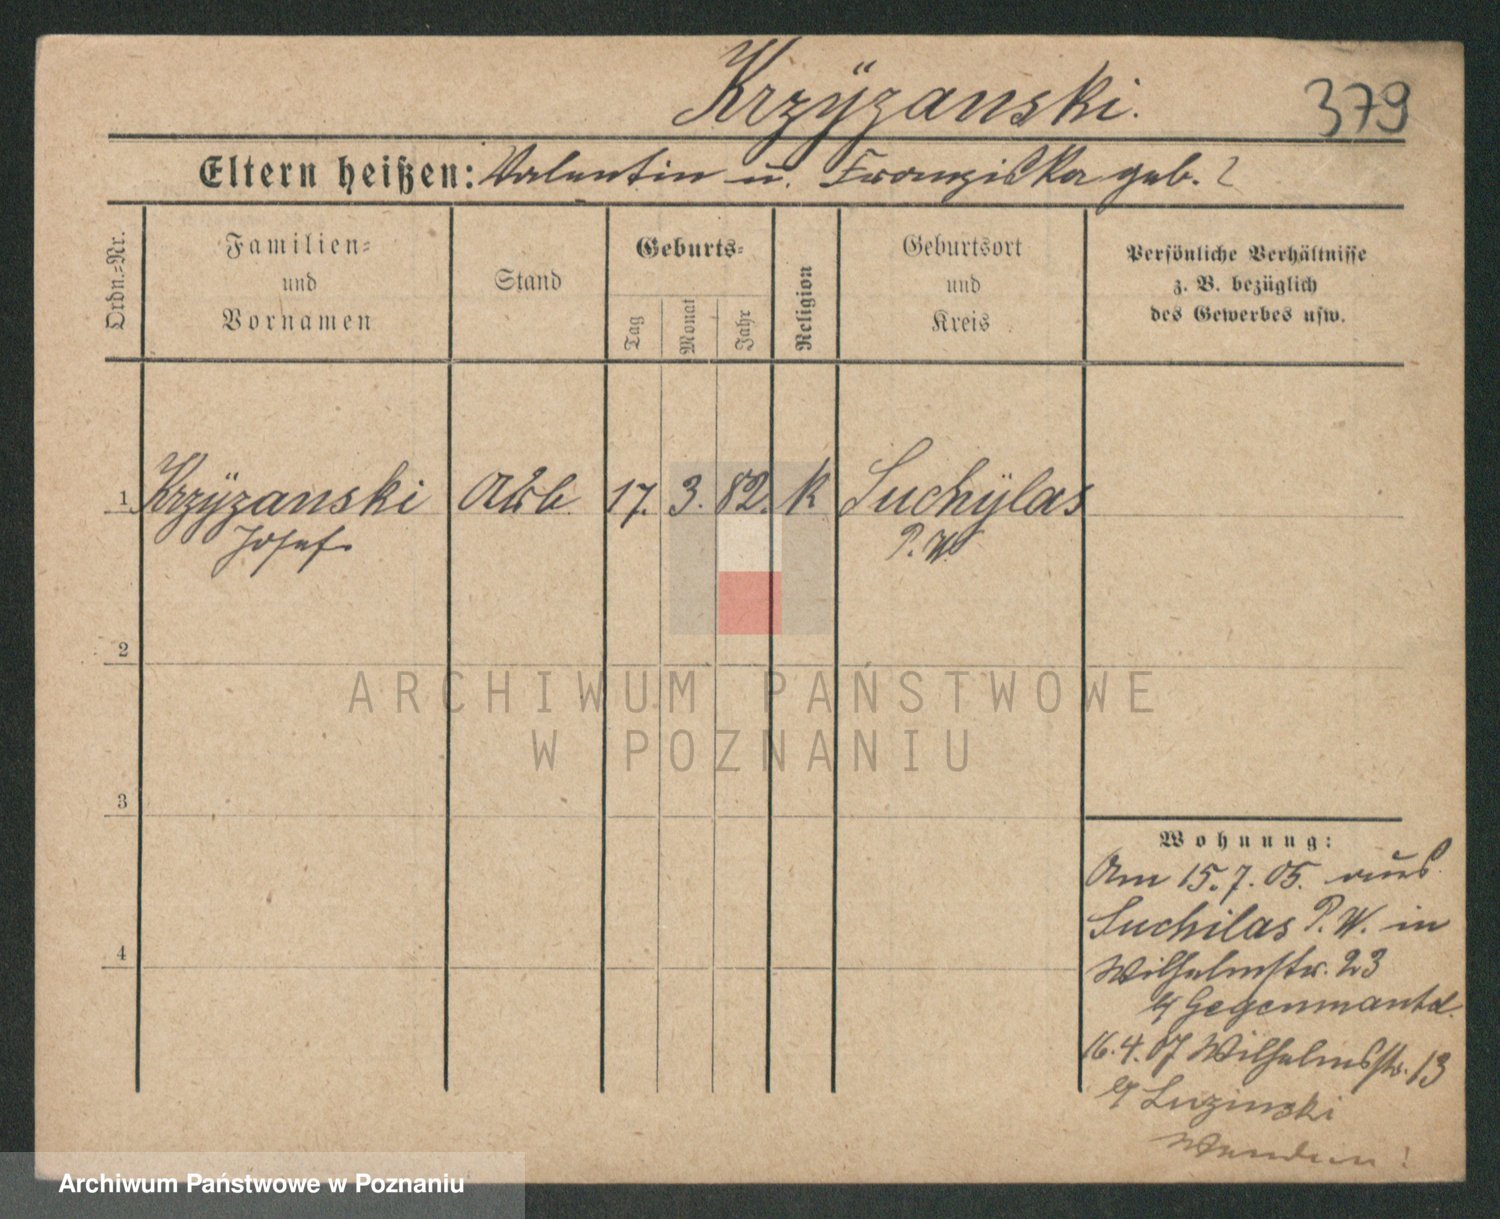 Krzÿzanski.
379
Eltern heißen: Valentin u. Franziska geb. ?
Ordn.-Nr.
Familien-
und
Vornamen
Stand
Geburts-
Tag
Monat
Jahr
Religion
Geburtsort
und
Kreis
Persönliche Verhältnisse
z. B. bezüglich
des Gewerbes usw.
1 Krzÿzanski Arb. 17. 3. 82. k Suchÿlas
Josef. P. W.
2
3
4
Wohnung:
Am 15.7.05. aus
Suchilas P. W. in
Wilhelmstr. 23
16.4.07 Wilhelmsstr. 13
ARCHIWUM PAŃSTWOWE
W POZNANIU
Archiwum Państwowe w Poznaniu